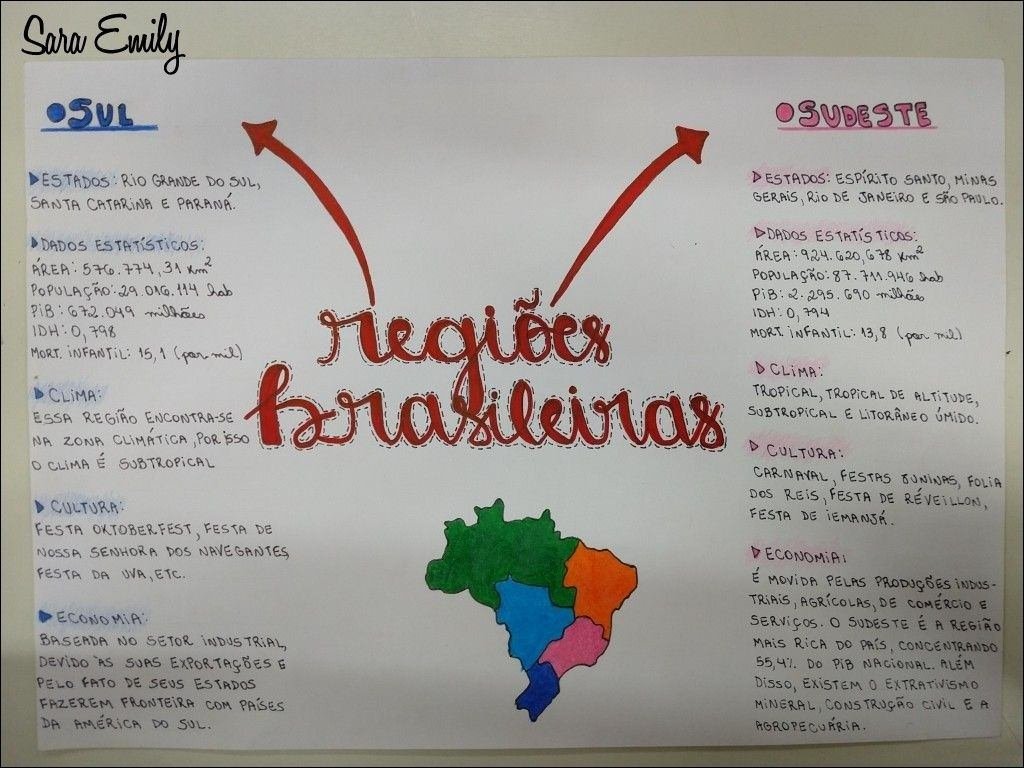 Sara Emily
SUL
ESTADOS: RIO GRANDE DO SUL,
SANTA CATARINA E PARANÁ.
DADOS ESTATÍSTICOS:
ÁREA: 576.774,31 km²
POPULAÇÃO: 29.016.114 hab
PIB: 672.049 milhões
IDH: 0,798
MORT. INFANTIL: 15,1 (por mil)
CLIMA:
ESSA REGIÃO ENCONTRA-SE
NA ZONA CLIMÁTICA, POR ISSO
O CLIMA É SUBTROPICAL
CULTURA:
FESTA OKTOBERFEST, FESTA DE
NOSSA SENHORA DOS NAVEGANTES,
FESTA DA UVA, ETC.
ECONOMIA:
BASEADA NO SETOR INDUSTRIAL,
DEVIDO ÀS SUAS EXPORTAÇÕES E
PELO FATO DE SEUS ESTADOS
FAZEREM FRONTEIRA COM PAÍSES
DA AMÉRICA DO SUL.
regiões
brasileiras
SUDESTE
ESTADOS: ESPÍRITO SANTO, MINAS
GERAIS, RIO DE JANEIRO E SÃO PAULO.
DADOS ESTATÍSTICOS:
ÁREA: 924.620,678 km²
POPULAÇÃO: 87.711.946 hab
PIB: 2.295.690 milhões
IDH: 0,794
MORT. INFANTIL: 13,8 (por mil)
CLIMA:
TROPICAL, TROPICAL DE ALTITUDE,
SUBTROPICAL E LITORÂNEO ÚMIDO.
CULTURA:
CARNAVAL, FESTAS JUNINAS, FOLIA
DOS REIS, FESTA DE RÉVEILLON,
FESTA DE IEMANJÁ.
ECONOMIA:
É MOVIDA PELAS PRODUÇÕES INDUS-
TRIAIS, AGRÍCOLAS, DE COMÉRCIO E
SERVIÇOS. O SUDESTE É A REGIÃO
MAIS RICA DO PAÍS, CONCENTRANDO
55,4% DO PIB NACIONAL. ALÉM
DISSO, EXISTEM O EXTRATIVISMO
MINERAL, CONSTRUÇÃO CIVIL E A
AGROPECUÁRIA.